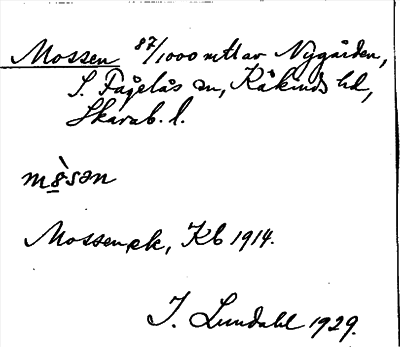 Mossen 87/1000 mtl av Nygården,
S. Fågelås sn, Kåkinds hd,
Skarab. l.
mò̱sən
Mossen, ek, Kb 1914.
J. Lundahl 1929.